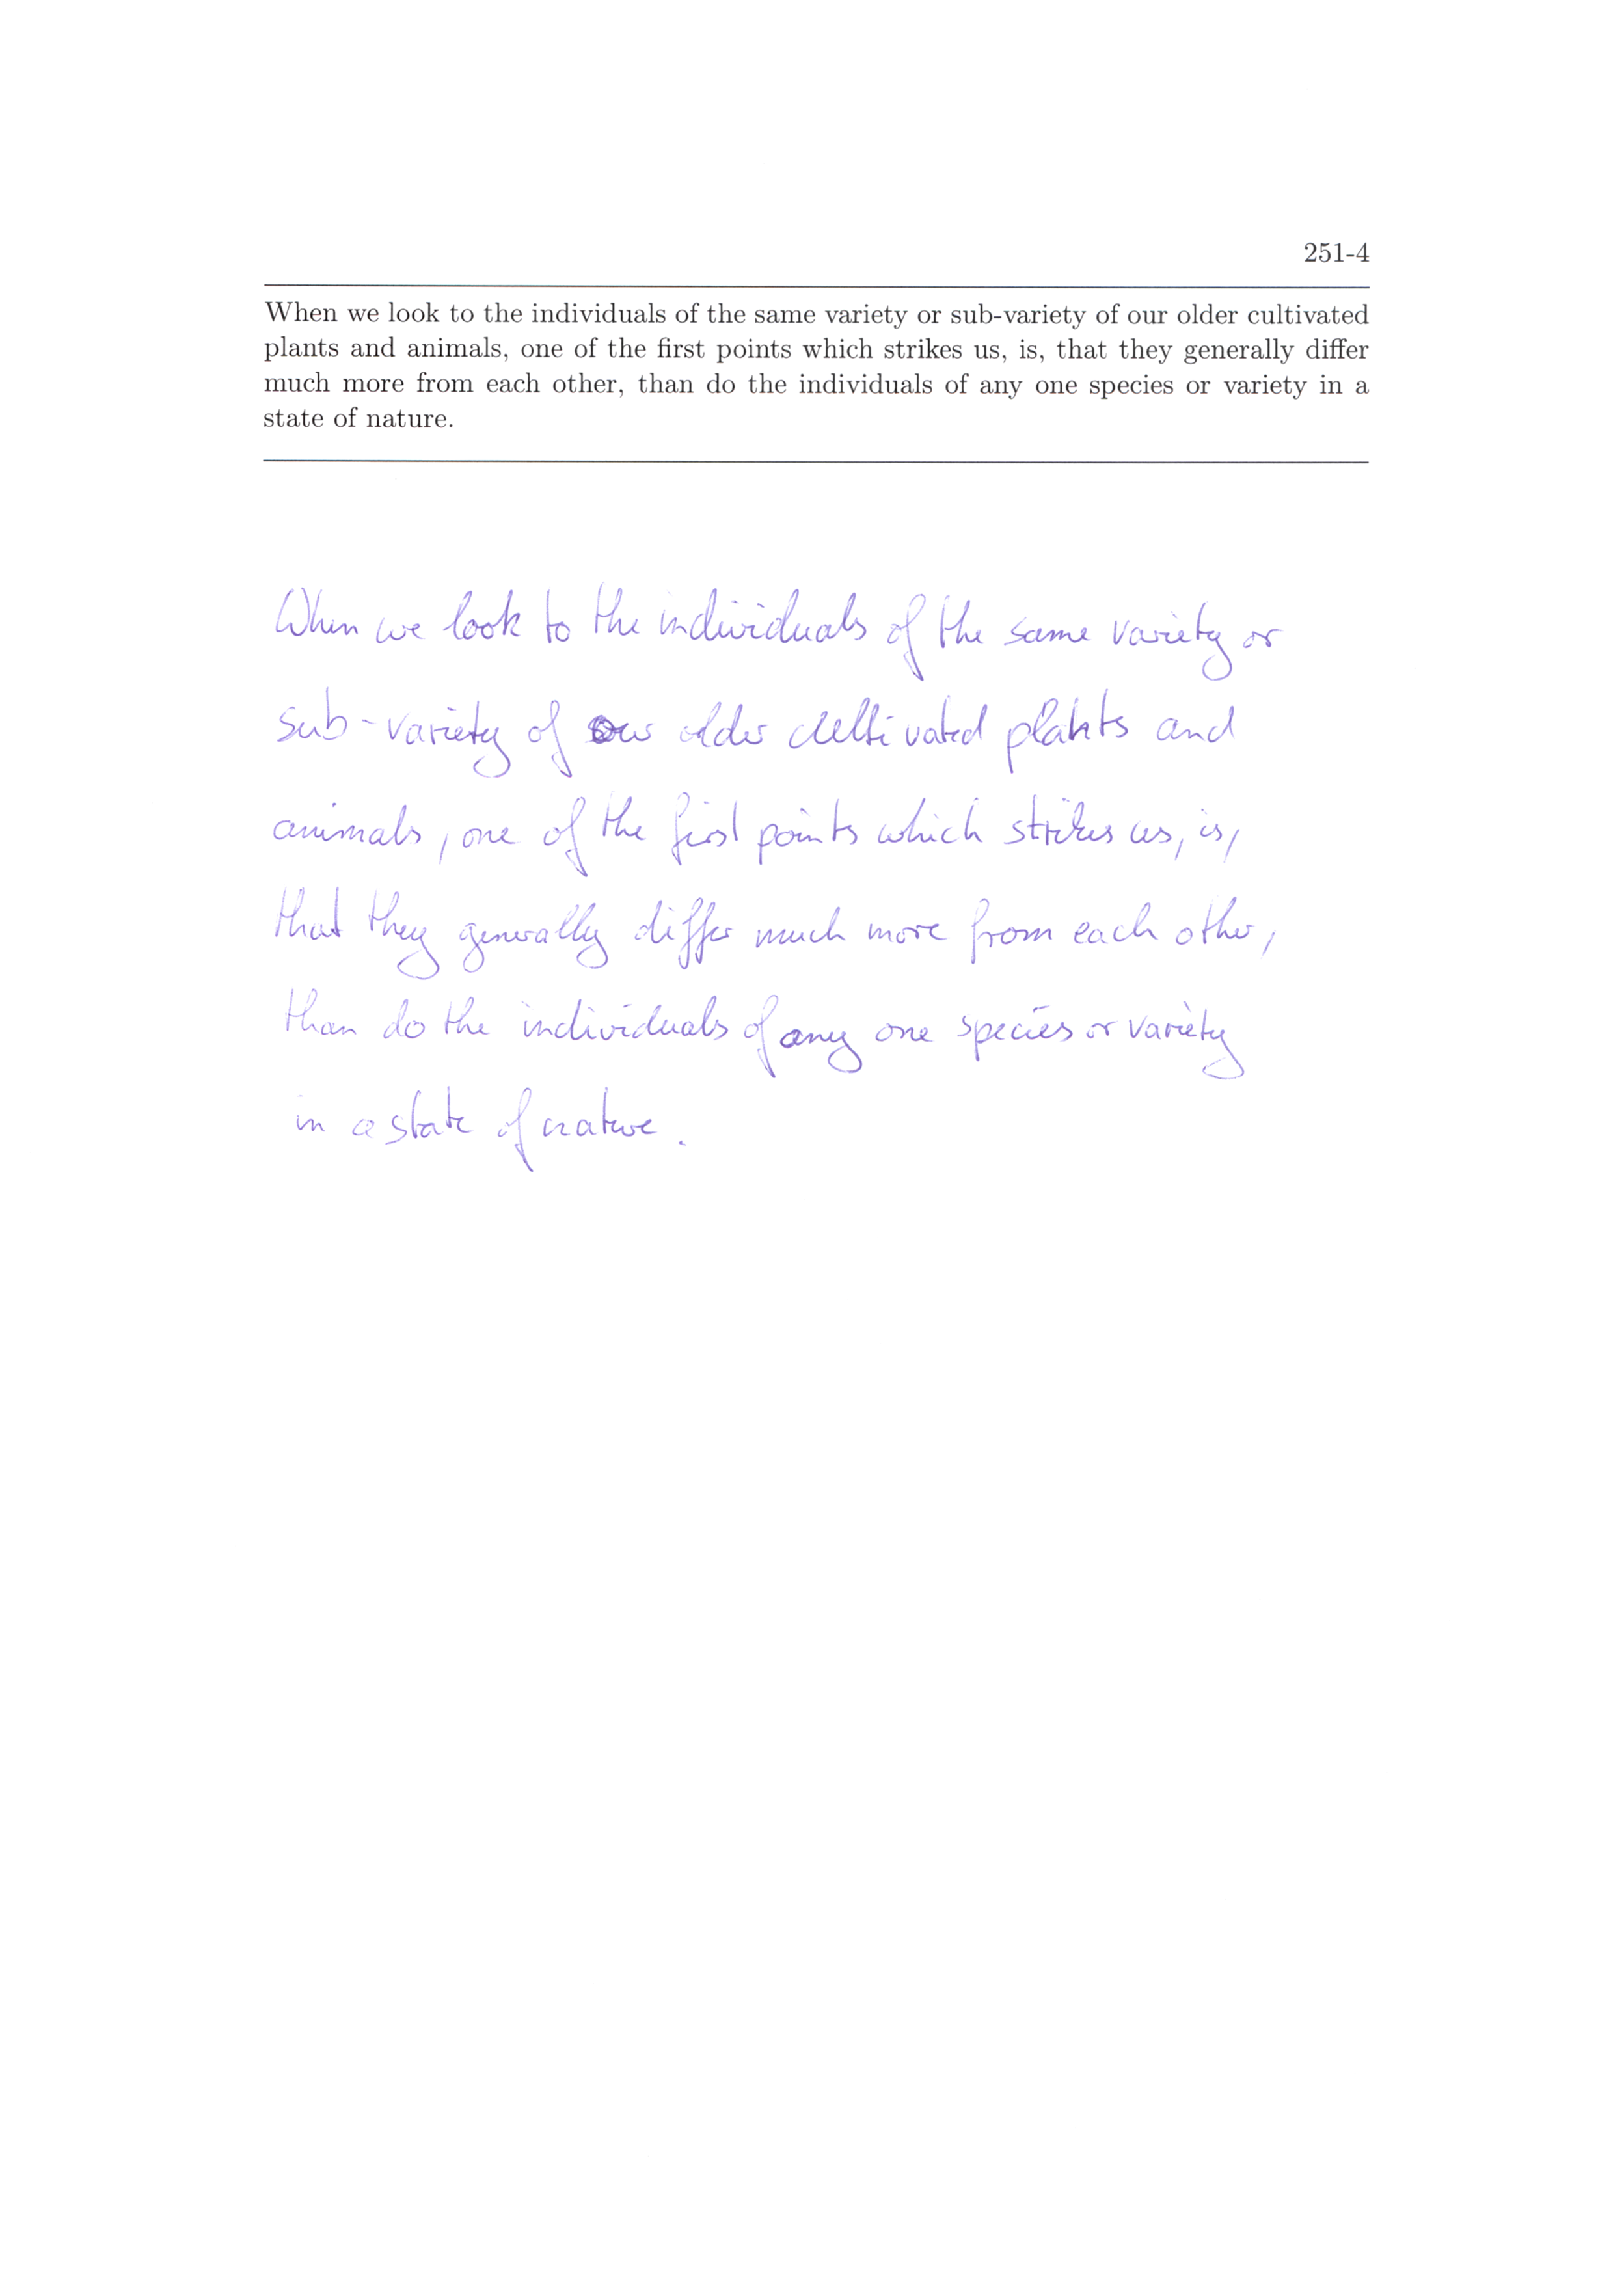 251-4
When we look to the individuals of the same variety or sub-variety of our older cultivated
plants and animals, one of the first points which strikes us, is, that they generally differ
much more from each other, than do the individuals of any one species or variety in a
state of nature.
When we look to the individuals of the same variety or
sub-variety of our older cultivated plants and
animals, one of the first points which strikes us, is,
that they generally differ much more from each other,
than do the individuals of any one species or variety
in a state of nature.